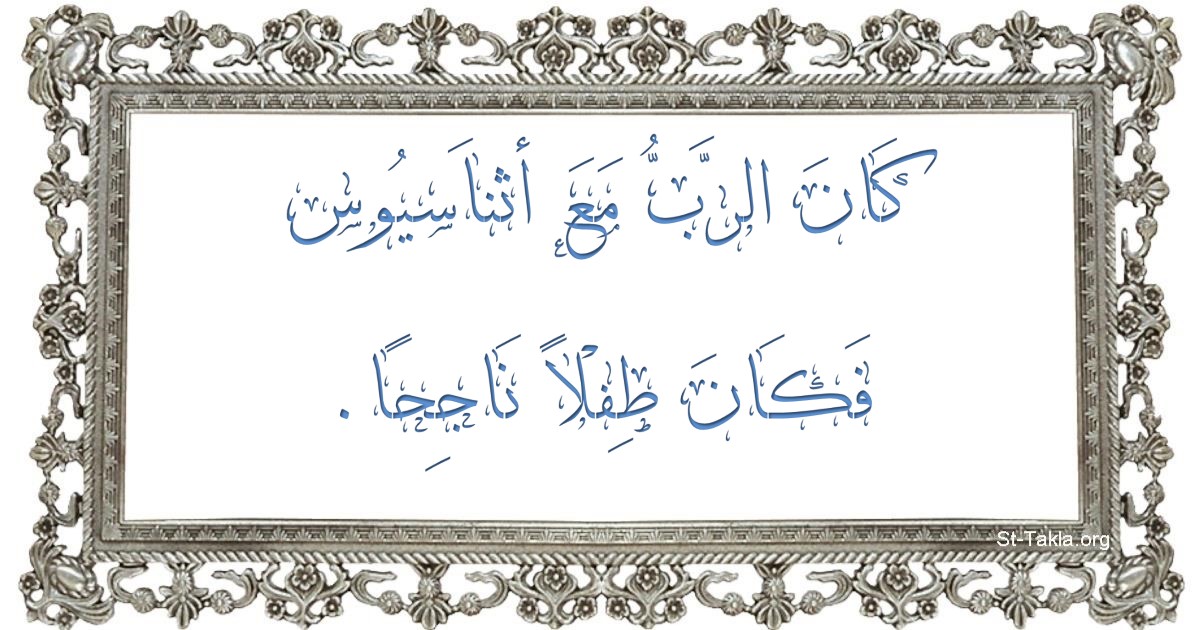 كَانَ الرَّبُّ مَعَ أثنَاسيُوس
فَكَانَ طِفْلاً نَاجِحًا .
St-Takla.org